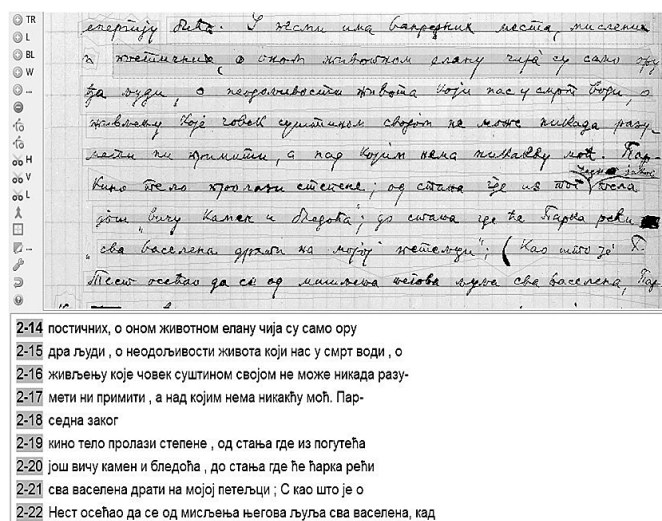 TR
L
BL
W
...
H
V
L
...
енергију бића. У песми има ванредних места, мисленик
и поетичних, о оном животном елану чија су само ору
ђа људи, о неодољивости живота који нас у смрт води, о
живљењу које човек суштином својом не може никада разу-
мети ни примити, а над којим нема никакву моћ. Пар-
кино тело пролази степене; од стања где из тог тела
још „вичу камен и бледоћа"; до стања где ће Парка рећи
„сва васелена дрхти на мојој петељци"; (Као што је Г.
Тест осећао да се од мишљења његова љуља сва васелена, Пар-
2-14 постичних, о оном животном елану чија су само ору
2-15 дра људи , о неодољивости живота који нас у смрт води , о
2-16 живљењу које човек суштином својом не може никада разу-
2-17 мети ни примити , а над којим нема никакћу моћ. Пар-
2-18 седна заког
2-19 кино тело пролази степене , од стања где из погутећа
2-20 још вичу камен и бледоћа , до стања где ће ћарка рећи
2-21 сва васелена драти на мојој петељци ; С као што је о
2-22 Нест осећао да се од мисљења његова љуља сва васелена, кад